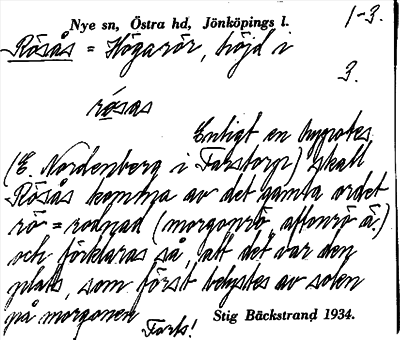 Nye sn, Östra hd, Jönköpings l.
1-3.
Rösås = Högarör, höjd i
3.
rosas
Enligt en hypotes
(E. Nordenberg i Farstorp) skall
Rösås komma av det gamla ordet
rö = rodnad (morgonrö, aftonrö ä.)
och förklaras så, att det var den
plats, som först belystes av solen
på morgonen
Forts!
Stig Bäckstrand 1934.